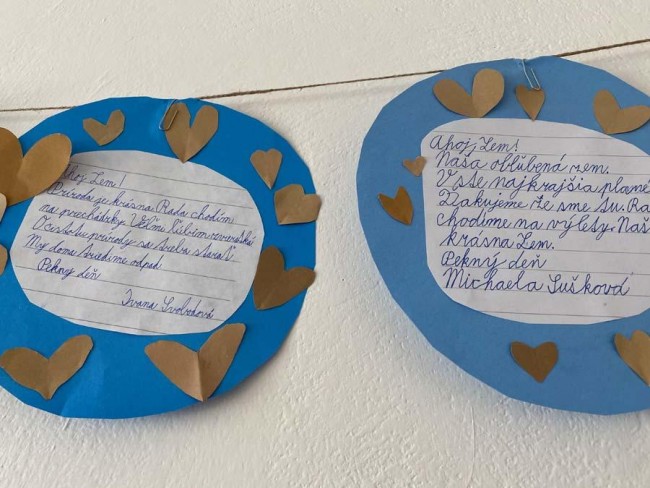 Ahoj Zem!
Príroda je krásna. Rada chodím
na prechádzky. Veľmi ľúbim
O čistotu prírody sa treba starať.
My doma triedime odpad.
Pekný deň
Ivana Svobodová
Ahoj Zem!
Naša obľúbená zem.
V ste najkrajšia plané
Ďakujeme že sme tu. Ra
chodíme na výlety. Naš
krásna Zem.
Pekný deň
Michaela Sušková